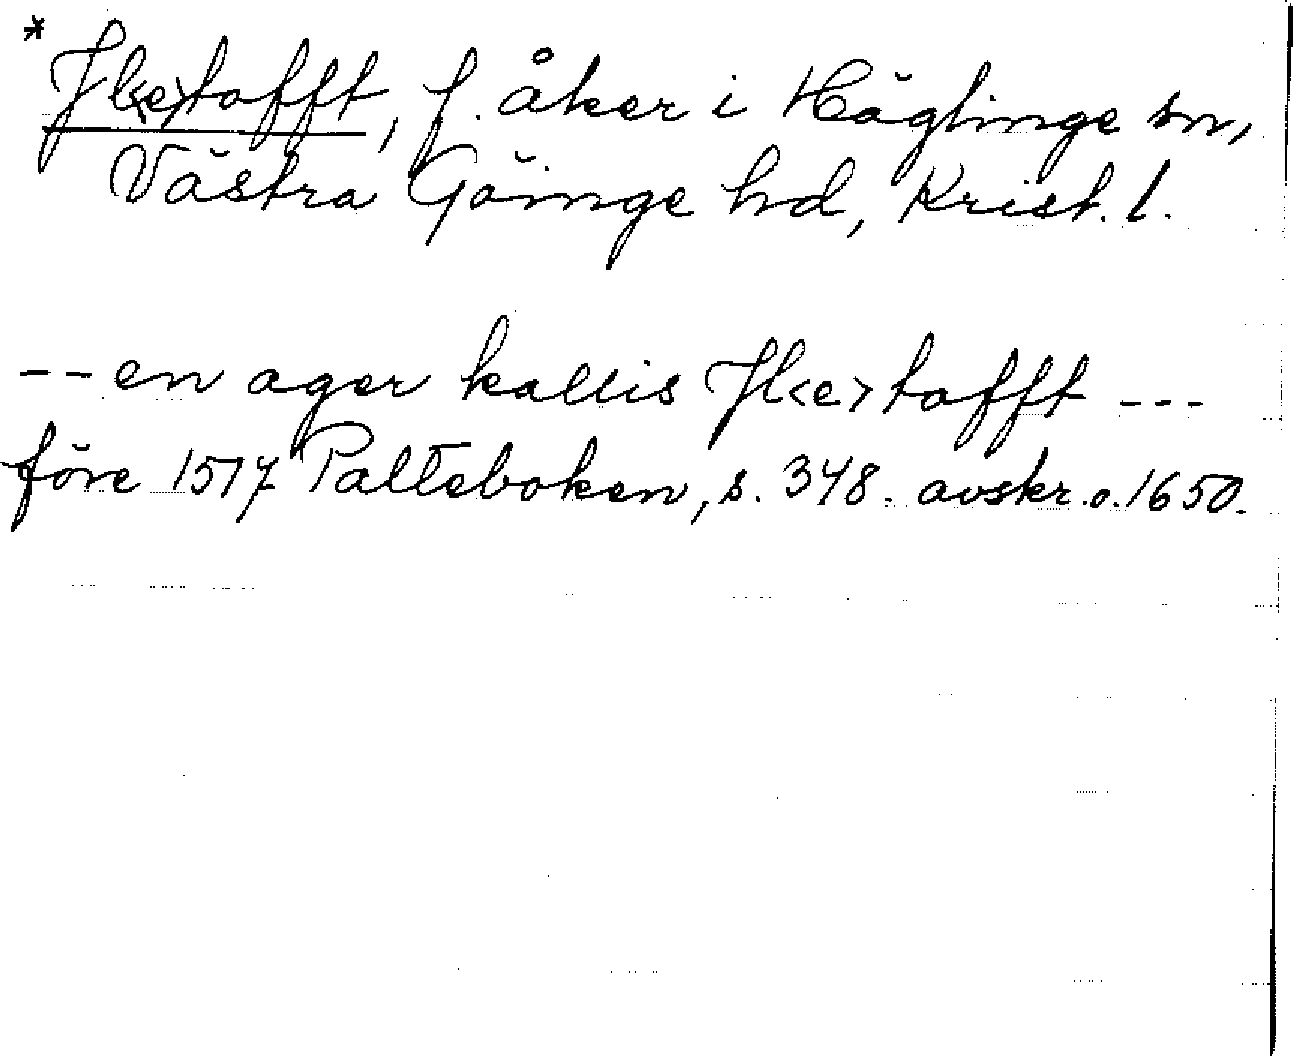 *Jl<e>tofft, f. åker i Häglinge sn,
Västra Göinge hd, Krist. l.
-- en ager kallis Jl<e>tofft ---
före 1517 Palteboken, s. 348. avskr. o. 1650.